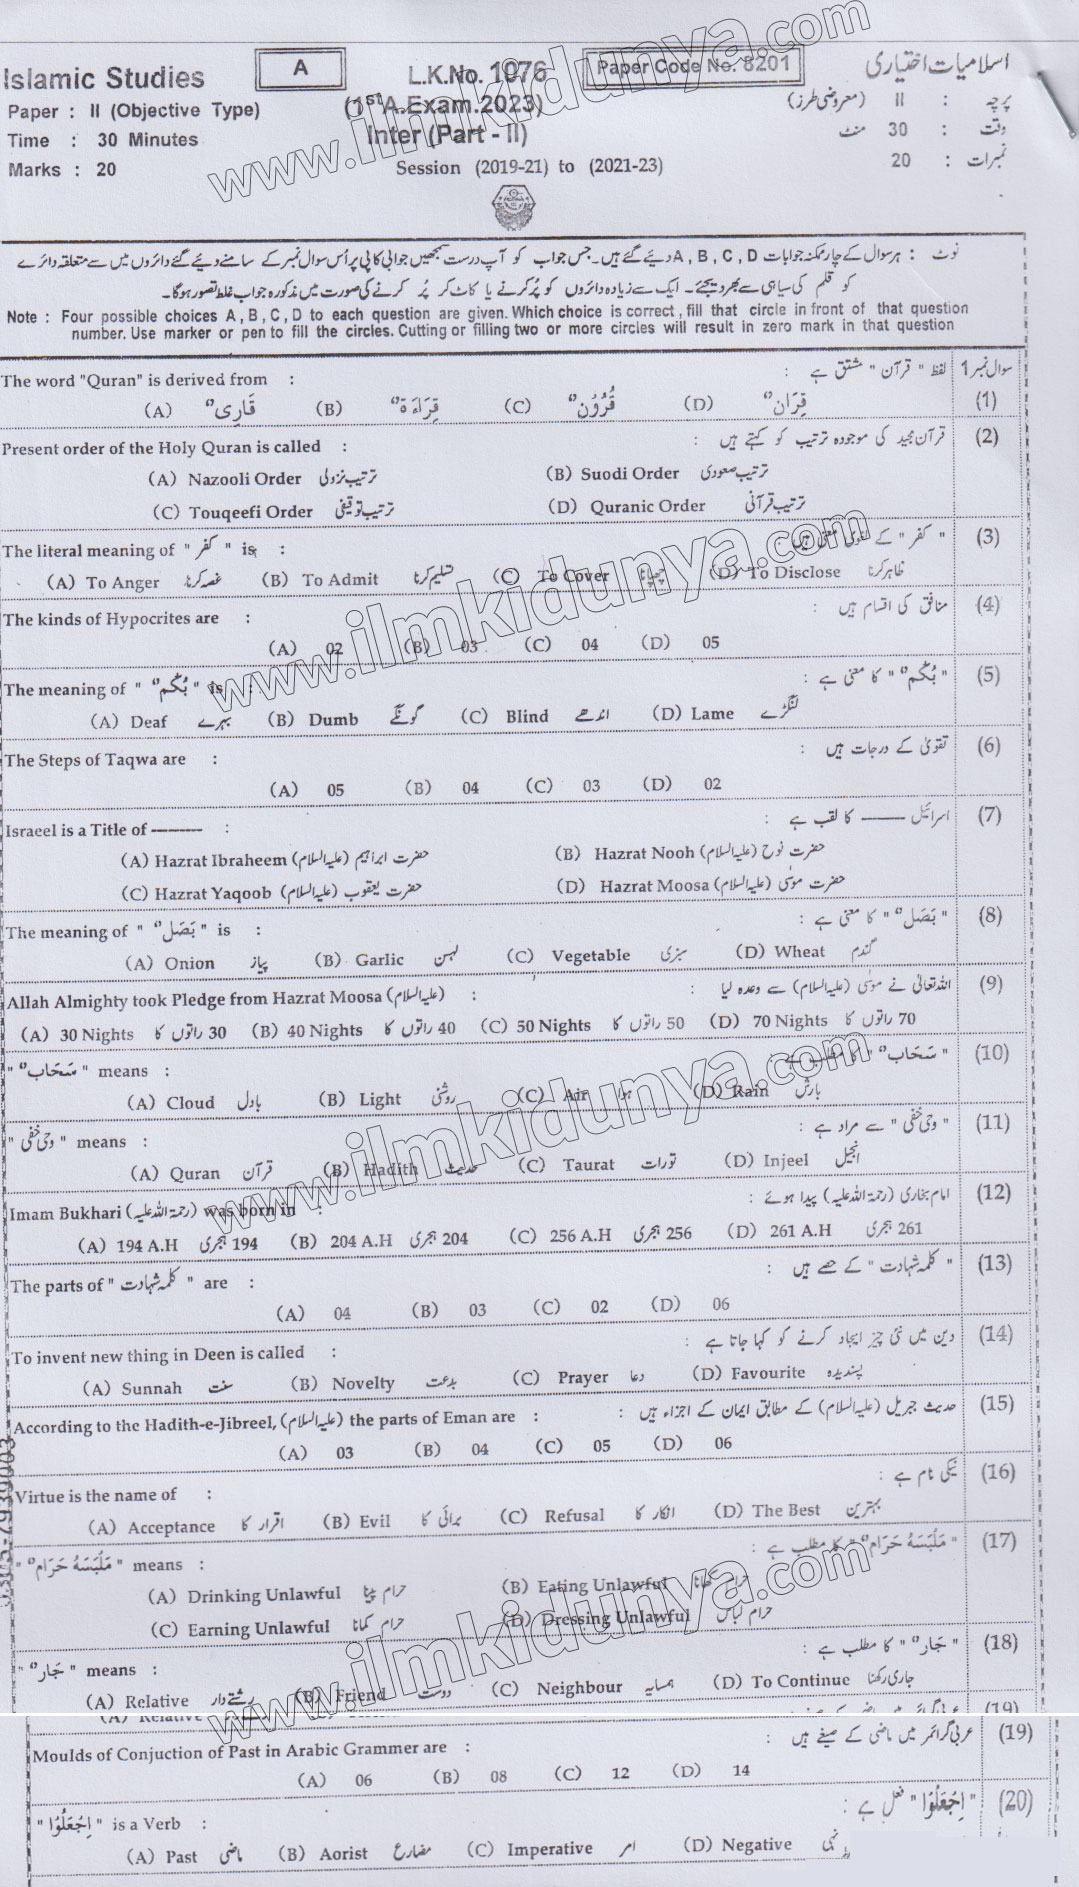 Islamic Studies A L.K.No. 1076 Paper Code No. 8201 اسلامیات اختیاری
Paper : II (Objective Type) (1st A.Exam.2023) پرچہ : II (معروضی طرز)
Time : 30 Minutes Inter (Part - II) وقت : 30 منٹ
Marks : 20 Session (2019-21) to (2021-23) نمبرات : 20
نوٹ : ہر سوال کے چار ممکنہ جوابات A , B , C , D دیئے گئے ہیں۔ جس جواب کو آپ درست سمجھیں جوابی کاپی پر اُس سوال نمبر کے سامنے دیئے گئے دائروں میں سے متعلقہ دائرے
کو قلم کی سیاہی سے بھر دیجئے۔ ایک سے زیادہ دائروں کو پُر کرنے یا کاٹ کر پُر کرنے کی صورت میں مذکورہ جواب غلط تصور ہوگا۔
Note : Four possible choices A , B , C , D to each question are given. Which choice is correct , fill that circle in front of that question
number. Use marker or pen to fill the circles. Cutting or filling two or more circles will result in zero mark in that question
The word "Quran" is derived from : لفظ " قرآن " مشتق ہے : سوال نمبر 1
(A) قَارِیءٌ (B) قِرَاءَۃٌ (C) قُرُوْنٌ (D) قِرَانٌ (1)
Present order of the Holy Quran is called : قرآن مجید کی موجودہ ترتیب کو کہتے ہیں : (2)
(A) Nazooli Order ترتیب نزولی (B) Suodi Order ترتیب صعودی
(C) Touqeefi Order ترتیب توقیفی (D) Quranic Order ترتیب قرآنی
The literal meaning of " کفر " is : " کفر " کے لغوی معنی ہیں : (3)
(A) To Anger غصہ کرنا (B) To Admit تسلیم کرنا (C) To Cover چھپانا (D) To Disclose ظاہر کرنا
The kinds of Hypocrites are : منافق کی اقسام ہیں : (4)
(A) 02 (B) 03 (C) 04 (D) 05
The meaning of " بُکْمٌ " is : " بُکْمٌ " کا معنی ہے : (5)
(A) Deaf بہرے (B) Dumb گونگے (C) Blind اندھے (D) Lame لنگڑے
The Steps of Taqwa are : تقویٰ کے درجات ہیں : (6)
(A) 05 (B) 04 (C) 03 (D) 02
Israeel is a Title of -------- : اسرائیل ------ کا لقب ہے : (7)
(A) Hazrat Ibraheem (علیہ السلام) حضرت ابراہیم (B) Hazrat Nooh (علیہ السلام) حضرت نوح
(C) Hazrat Yaqoob (علیہ السلام) حضرت یعقوب (D) Hazrat Moosa (علیہ السلام) حضرت موسٰی
The meaning of " بَصَلٌ " is : " بَصَلٌ " کا معنی ہے : (8)
(A) Onion پیاز (B) Garlic لہسن (C) Vegetable سبزی (D) Wheat گندم
Allah Almighty took Pledge from Hazrat Moosa (علیہ السلام) : اللہ تعالیٰ نے موسٰی (علیہ السلام) سے وعدہ لیا : (9)
(A) 30 Nights 30 راتوں کا (B) 40 Nights 40 راتوں کا (C) 50 Nights 50 راتوں کا (D) 70 Nights 70 راتوں کا
" سَحَابٌ " means : " سَحَابٌ " کا مطلب ہے : (10)
(A) Cloud بادل (B) Light روشنی (C) Air ہوا (D) Rain بارش
" وحی خفی " means : " وحی خفی " سے مراد ہے : (11)
(A) Quran قرآن (B) Hadith حدیث (C) Taurat تورات (D) Injeel انجیل
Imam Bukhari (رحمۃ اللہ علیہ) was born in : امام بخاری (رحمۃ اللہ علیہ) پیدا ہوئے : (12)
(A) 194 A.H 194 ہجری (B) 204 A.H 204 ہجری (C) 256 A.H 256 ہجری (D) 261 A.H 261 ہجری
The parts of " کلمہ شہادت " are : " کلمہ شہادت " کے حصے ہیں : (13)
(A) 04 (B) 03 (C) 02 (D) 06
To invent new thing in Deen is called : دین میں نئی چیز ایجاد کرنے کو کہا جاتا ہے : (14)
(A) Sunnah سنت (B) Novelty بدعت (C) Prayer دعا (D) Favourite پسندیدہ
According to the Hadith-e-Jibreel, (علیہ السلام) the parts of Eman are : حدیث جبریل (علیہ السلام) کے مطابق ایمان کے اجزاء ہیں : (15)
(A) 03 (B) 04 (C) 05 (D) 06
Virtue is the name of : نیکی نام ہے : (16)
(A) Acceptance اقرار کا (B) Evil برائی کا (C) Refusal انکار کا (D) The Best بہترین
" مَلْبَسُهٗ حَرَامٌ " means : " مَلْبَسُهٗ حَرَامٌ " کا مطلب ہے : (17)
(A) Drinking Unlawful حرام پینا (B) Eating Unlawful حرام کھانا
(C) Earning Unlawful حرام کمانا (D) Dressing Unlawful حرام لباس
" جَارٌ " means : " جَارٌ " کا مطلب ہے : (18)
(A) Relative رشتے دار (B) Friend دوست (C) Neighbour ہمسایہ (D) To Continue جاری رکھنا
Moulds of Conjuction of Past in Arabic Grammer are : عربی گرائمر میں ماضی کے صیغے ہیں : (19)
(A) 06 (B) 08 (C) 12 (D) 14
" اِجْعَلُوْا " is a Verb : " اِجْعَلُوْا " فعل ہے : (20)
(A) Past ماضی (B) Aorist مضارع (C) Imperative امر (D) Negative نہی
www.ilmkidunya.com
www.ilmkidunya.com
www.ilmkidunya.com
www.ilmkidunya.com